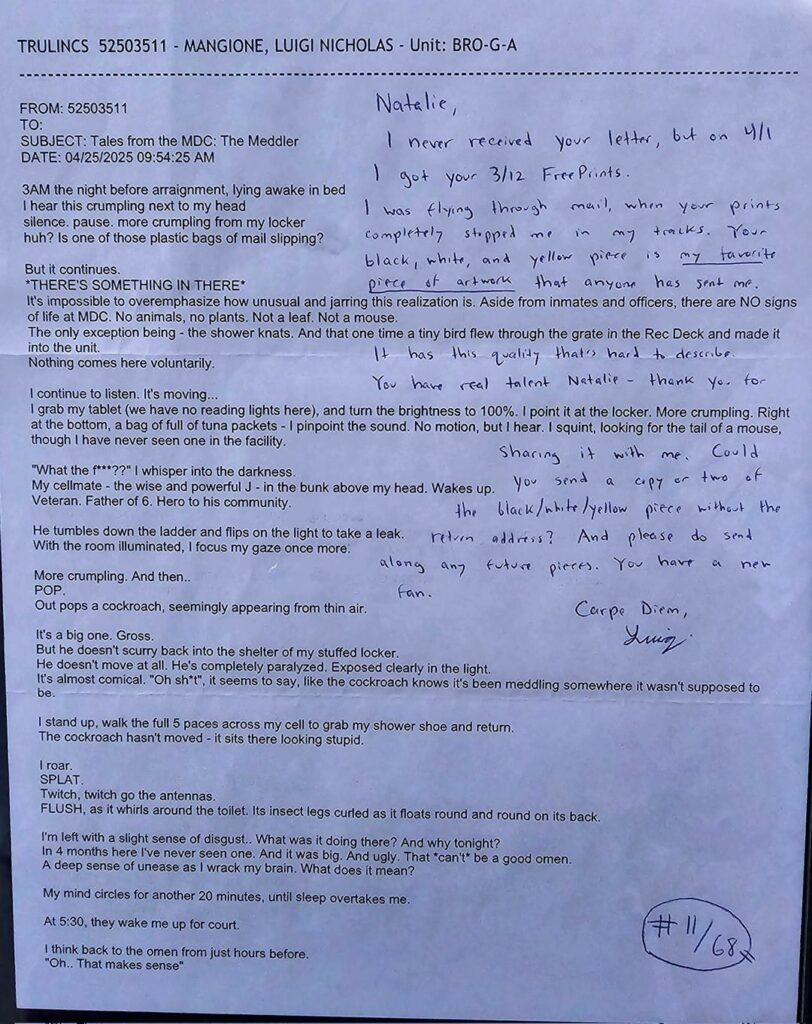 TRULINCS 52503511 - MANGIONE, LUIGI NICHOLAS - Unit: BRO-G-A
FROM: 52503511
TO:
SUBJECT: Tales from the MDC: The Meddler
DATE: 04/25/2025 09:54:25 AM
3AM the night before arraignment, lying awake in bed
I hear this crumpling next to my head
silence. pause. more crumpling from my locker
huh? Is one of those plastic bags of mail slipping?
But it continues.
*THERE'S SOMETHING IN THERE*
It's impossible to overemphasize how unusual and jarring this realization is. Aside from inmates and officers, there are NO signs
of life at MDC. No animals, no plants. Not a leaf. Not a mouse.
The only exception being - the shower knats. And that one time a tiny bird flew through the grate in the Rec Deck and made it
into the unit.
Nothing comes here voluntarily.
I continue to listen. It's moving...
I grab my tablet (we have no reading lights here), and turn the brightness to 100%. I point it at the locker. More crumpling. Right
at the bottom, a bag of full of tuna packets - I pinpoint the sound. No motion, but I hear. I squint, looking for the tail of a mouse,
though I have never seen one in the facility.
"What the f***??" I whisper into the darkness.
My cellmate - the wise and powerful J - in the bunk above my head. Wakes up.
Veteran. Father of 6. Hero to his community.
He tumbles down the ladder and flips on the light to take a leak.
With the room illuminated, I focus my gaze once more.
More crumpling. And then..
POP.
Out pops a cockroach, seemingly appearing from thin air.
It's a big one. Gross.
But he doesn't scurry back into the shelter of my stuffed locker.
He doesn't move at all. He's completely paralyzed. Exposed clearly in the light.
It's almost comical. "Oh sh*t", it seems to say, like the cockroach knows it's been meddling somewhere it wasn't supposed to
be.
I stand up, walk the full 5 paces across my cell to grab my shower shoe and return.
The cockroach hasn't moved - it sits there looking stupid.
I roar.
SPLAT.
Twitch, twitch go the antennas.
FLUSH, as it whirls around the toilet. Its insect legs curled as it floats round and round on its back.
I'm left with a slight sense of disgust.. What was it doing there? And why tonight?
In 4 months here I've never seen one. And it was big. And ugly. That *can't* be a good omen.
A deep sense of unease as I wrack my brain. What does it mean?
My mind circles for another 20 minutes, until sleep overtakes me.
At 5:30, they wake me up for court.
I think back to the omen from just hours before.
"Oh.. That makes sense"
Natalie,
I never received your letter, but on 4/1
I got your 3/12 FreePrints.
I was flying through mail, when your prints
completely stopped me in my tracks. Your
black, white, and yellow piece is my favorite
piece of artwork that anyone has sent me.
It has this quality that's hard to describe.
You have real talent Natalie - thank you for
sharing it with me. Could
you send a copy or two of
the black/white/yellow piece without the
return address? And please do send
along any future pieces. You have a new
fan.
Carpe Diem,
Luigi
#11/68